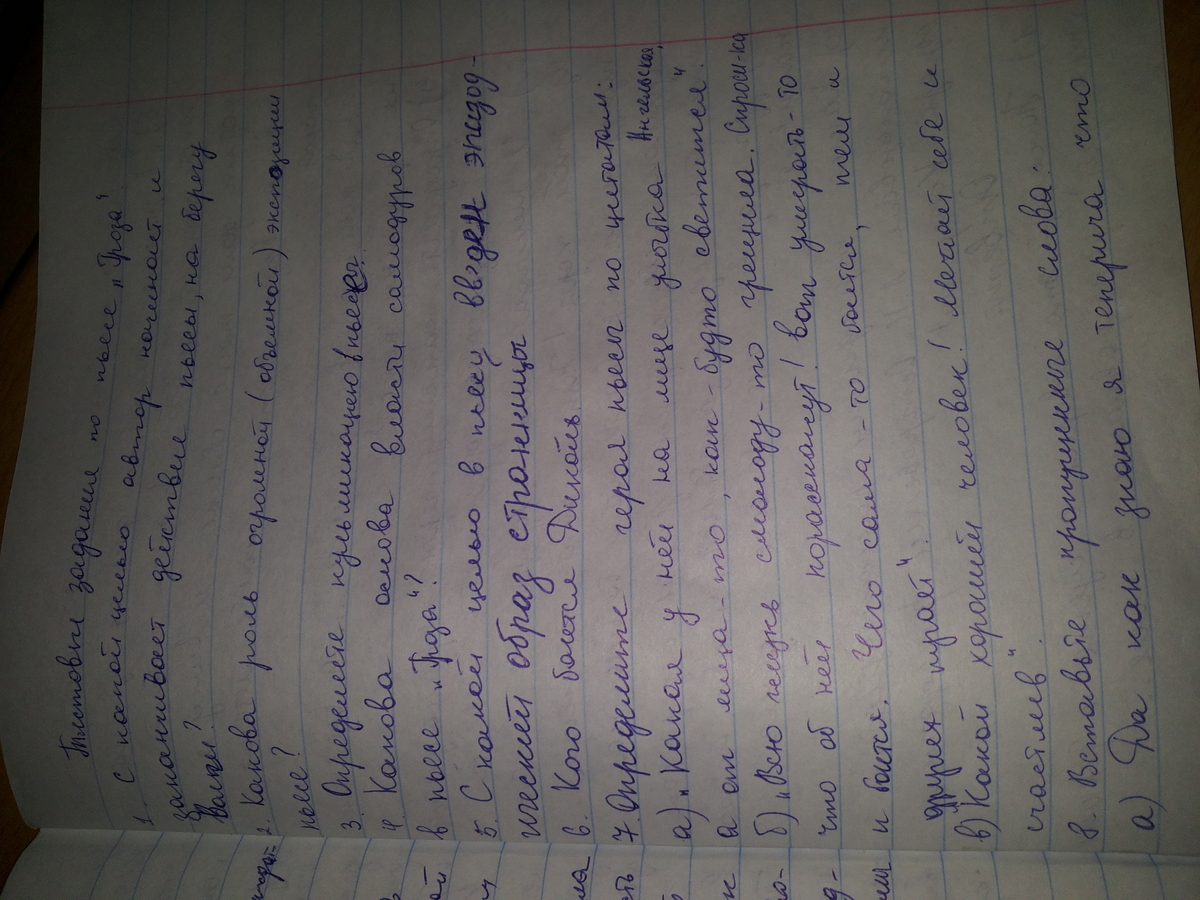 Тестовые задание по пьесе „Гроза"
1. С какой целью автор начинает и
заканчивает действие пьесы, на берегу
Волги?
2. Какова роль огромной (объемной) экспозиции
пьесе?
3. Определите кульминацию в пьесе.
4. Какова основа власти самодуров
в пьесе „Гроза"?
5. С какой целью в пьесу введен эпизод-
ический образ странницы
6. Кого боится Дикой
7. Определите героя пьесы по цитатам:
а) „Какая у ней на лице улыбка Ангельская,
а от лица-то, как-будто светится".
б) „Всю жизнь смолоду-то грешила. Спроси-ка
что об ней порасскажут! вот умереть-то
и боится. Чего сама-то боится, тем и
других пугает"
в) Какой хороший человек! Мечтает себе и
счастлив"
8. Вставьте пропущенное слова:
а) Да как знаю я теперича что